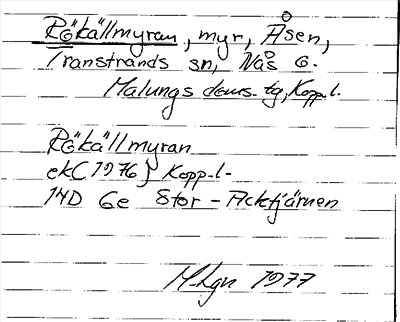 Rökällmyran, myr, Åsen,
Transtrands sn, Nås o.
Malungs doms. tg, Kopp.l.
Rökällmyran
ekC 1976} Kopp.l-
14D 6e Stor-Acktjärnen
M.Lgn 1977